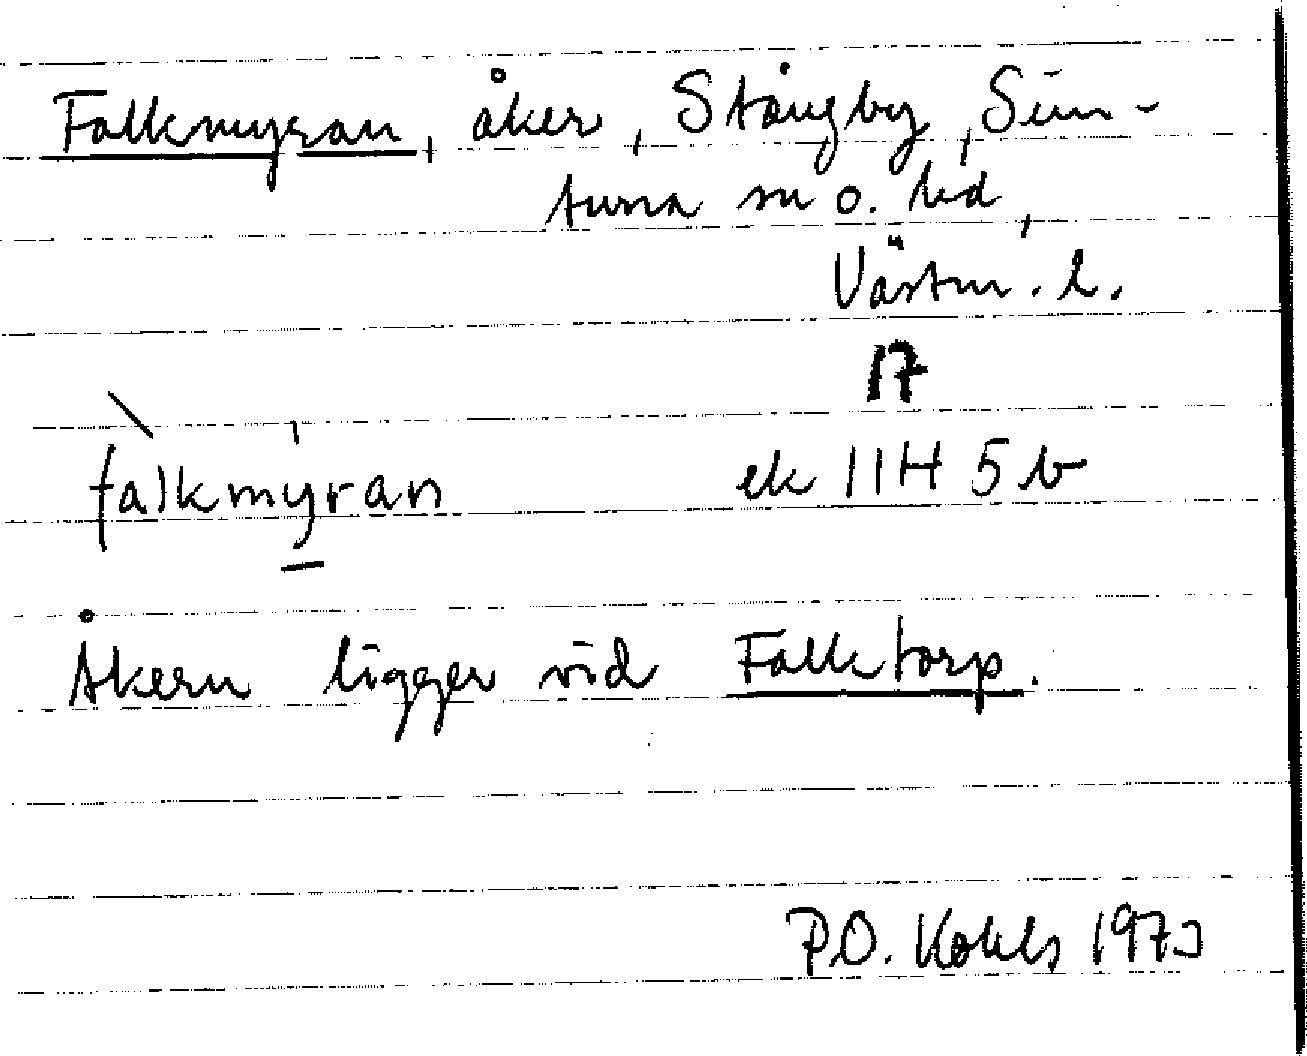 Falkmyran, åker, Stångby, Sim-
tuna sn o. hd,
Västm. l.
17
falkmyran ek 11H 5 b
Åkern ligger vid Falktorp.
P.O. Kohls 1973